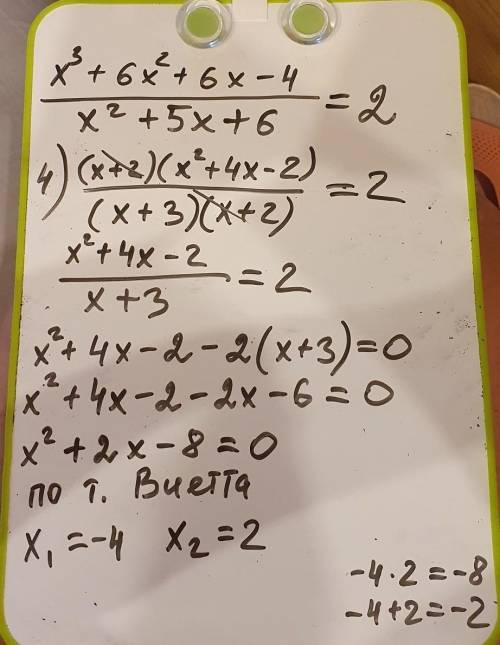 x³ + 6x² + 6x - 4
x² + 5x + 6
= 2
4) (x+2)(x² + 4x - 2)
(x + 3)(x + 2)
= 2
x² + 4x - 2
x + 3
= 2
x² + 4x - 2 - 2(x+3) = 0
x² + 4x - 2 - 2x - 6 = 0
x² + 2x - 8 = 0
по т. Виетта
x₁ = -4 x₂ = 2
-4 · 2 = -8
-4 + 2 = -2